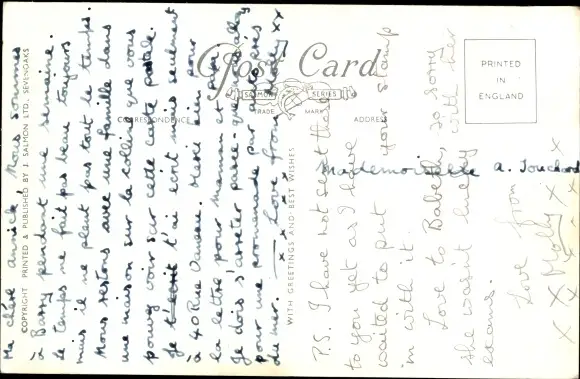 Ma chère Annick, Nous sommes
à Barry pendant une semaine.
Le temps ne fait pas beau toujours
mais il ne pleut pas tout le temps.
Nous restons avec une famille dans
une maison sur la colline que vous
pouvez voir sur cette carte postale.
Je t'écrit t'ai ecrit mais seulement
à 40 Rue Vaneau. Merci bien pour
la lettre pour maman et
Je dois s'arreter parce-que
pour une promenade par
du mer. — Love from Molly xx
x x x x x x x
P.S. I have not sent these
to you yet as I have
waited to put your stamp
in with it.
Love to Babeth, so sorry
she wasn't lucky with her
exams.
Love from
x x Molly x x
Mademoiselle A. Touchard
Post Card
SALMON SERIES
TRADE MARK
CORRESPONDENCE
ADDRESS
PRINTED
IN
ENGLAND
COPYRIGHT PRINTED & PUBLISHED BY J. SALMON LTD., SEVENOAKS
WITH GREETINGS AND BEST WISHES